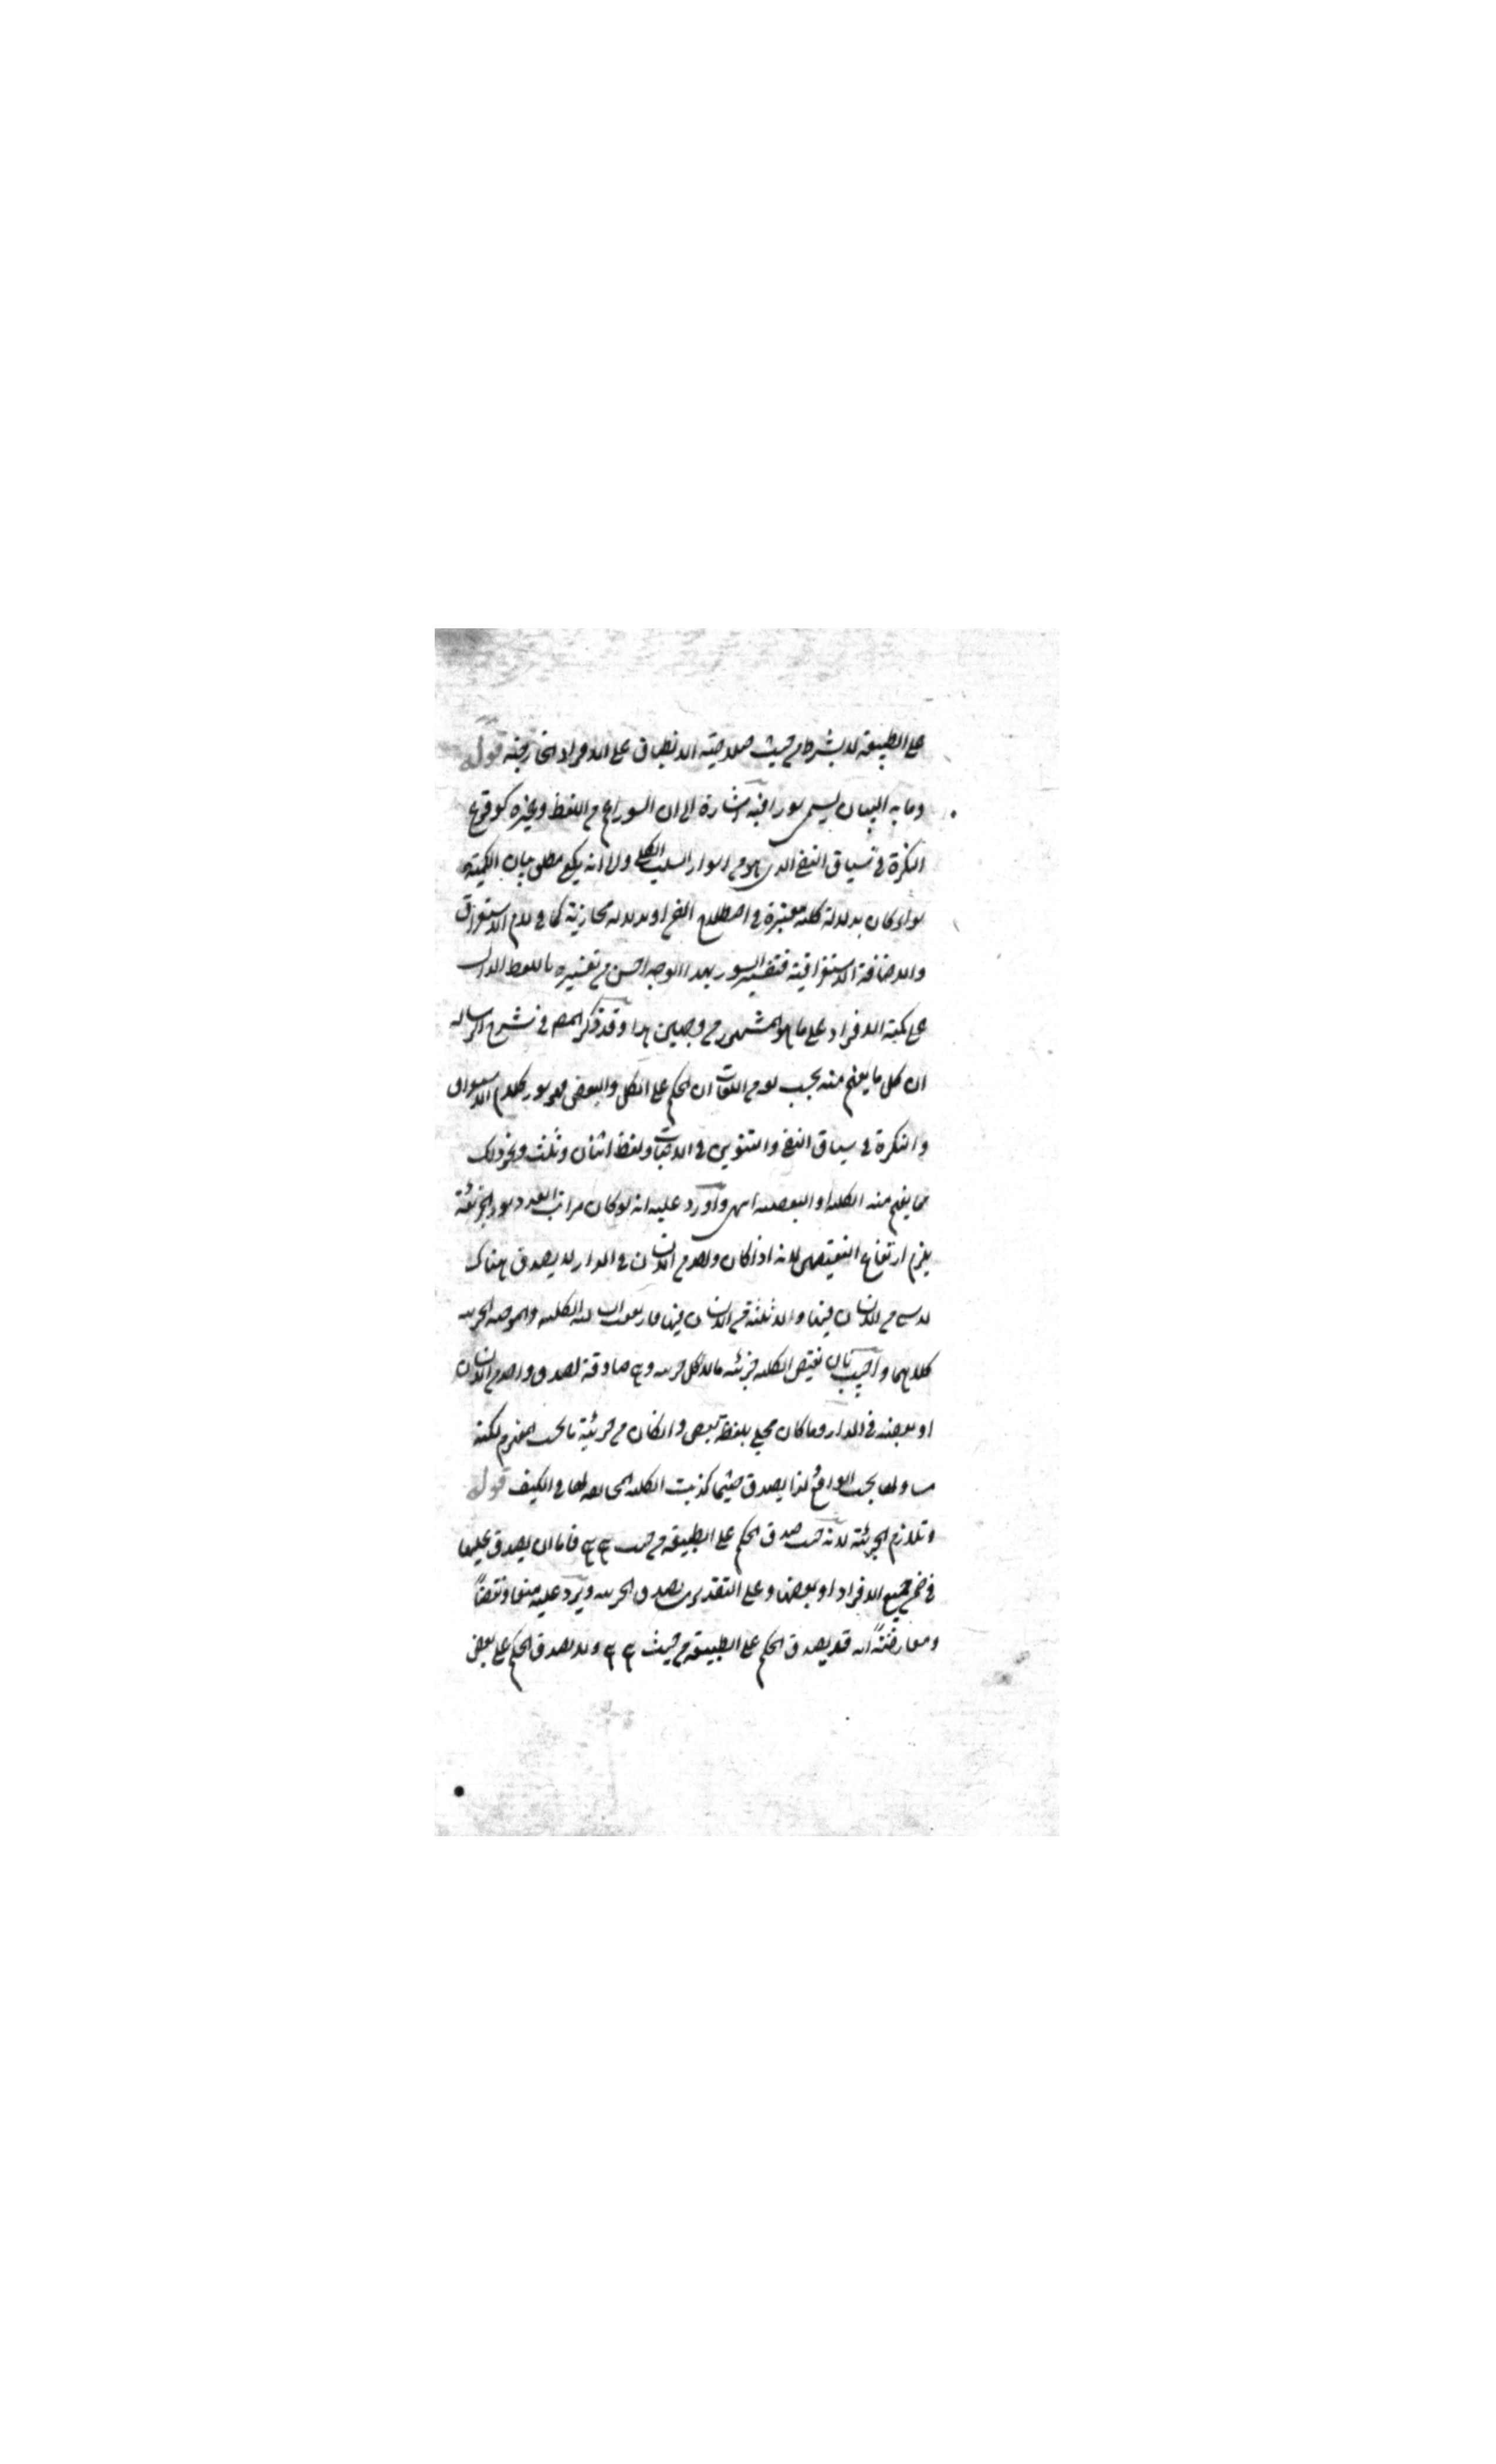 على الطبيعة لا بشرط من حيث صلاحية الانطباق على الافراد الخارجية قوله
وما به البيان يسمى سورا فيه اشارة الى ان السور اعم من اللفظ وغيره كوقوع
النكرة في سياق النفي الذي هو من اسوار السلب الكلي والى انه يكفي مطلق بيان الكمية
سواء كان بدلالة كلية معتبرة في اصطلاح الفن او بدلالة مجازية كما في لام الاستغراق
والاضافة الاستغراقية فتفسير السور بهذا الوجه احسن من تفسيره باللفظ الدال
على كمية الافراد على ما هو المشهور من وجهين هذا وقد ذكر المص في شرح الرسالة
ان كل ما يفهم منه بحسب لغة من اللغات ان الحكم على الكل والبعض فهو سور كلام الاستغراق
والنكرة في سياق النفي والتنوين في الاثبات ولفظ اثنان وثلث ونحو ذلك
مما يفهم منه الكلية او البعضية انتهى واورد عليه انه لو كان مراتب العدد سور الجزئية
يلزم ارتفاع النقيضين لانه اذا كان واحد من الانسان في الدار لا يصدق هناك
لا شيء من الانسان فيها ولا ثلثة من الانسان فيها فارتفعت السالبة الكلية والموجبة الجزئية
كلاهما واجيب بان نقيض الكلية جزئية ما لا كل جزئية وهي صادقة لصدق واحد من الانسان
او بعضه في الدار وما كان محلى بلفظ بعض وان كان من جزئية ما بحسب المفهوم لكنه
مساو لها بحسب الواقع لذا يصدق حيثما كذبت الكلية المخالفة لها في الكيف قوله
وتلازم الجزئية لانه حيث صدق الحكم على الطبيعة من حيث هي هي فاما ان يصدق عليها
في ضمن جميع الافراد او بعضها وعلى التقديرين يصدق الجزئية ويرد عليه منعا ونقضاً
ومعارضةً انه قد يصدق الحكم على الطبيعة من حيث هي هي ولا يصدق الحكم على بعض